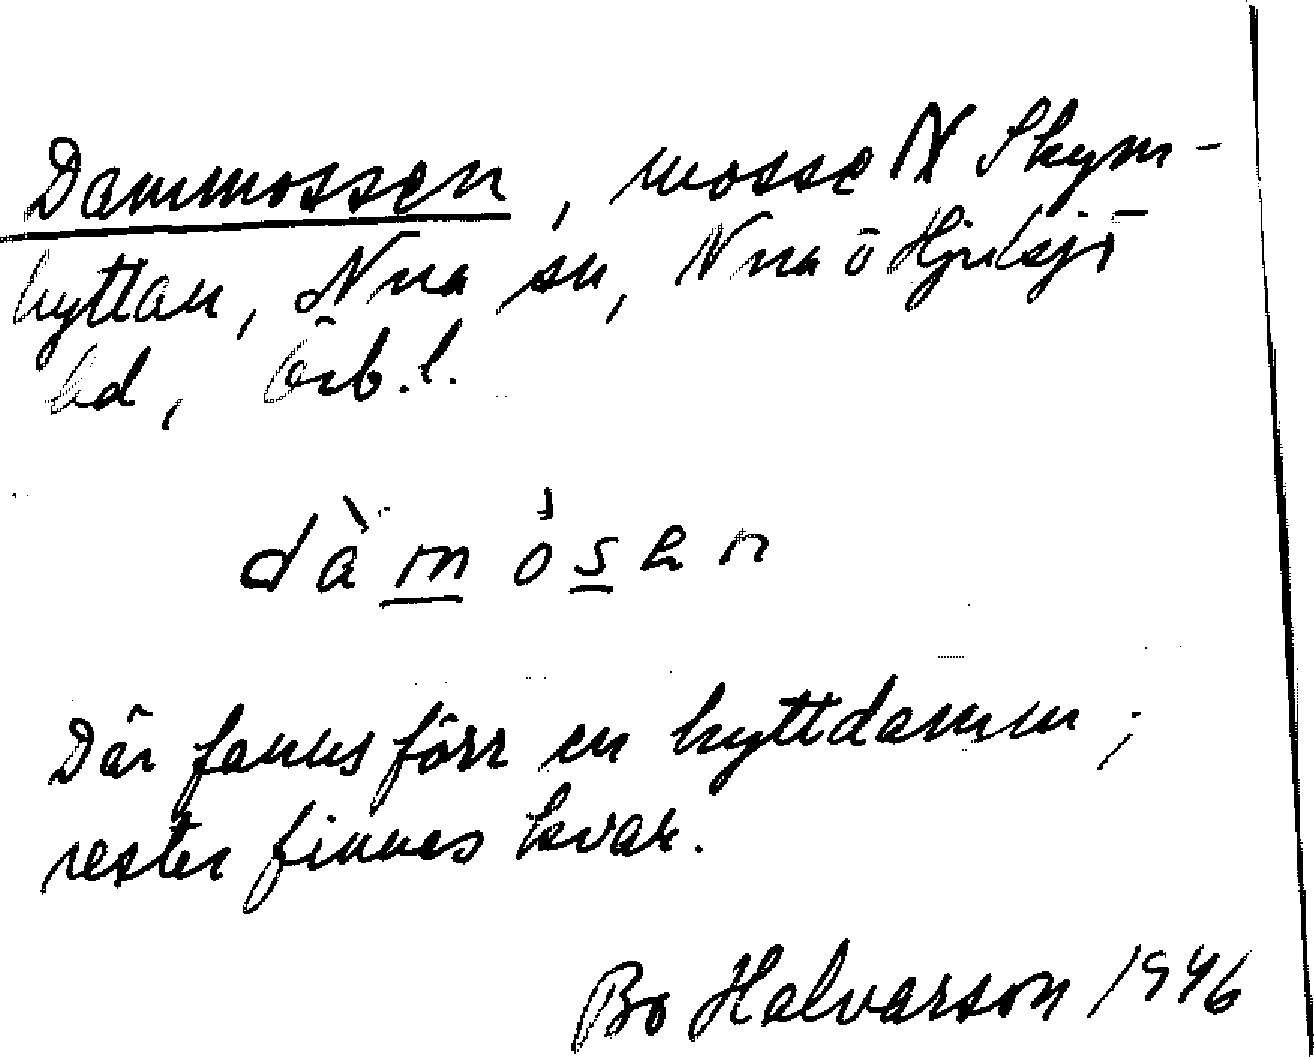 Dammossen, mosse N Skym-
hyttan, Nora sn, Nora o Hjulsjö
bd, Örb.l.
dàmósen
Där fanns förr en hyttdamm;
rester finnes kvar.
Bo Halvarson 1946